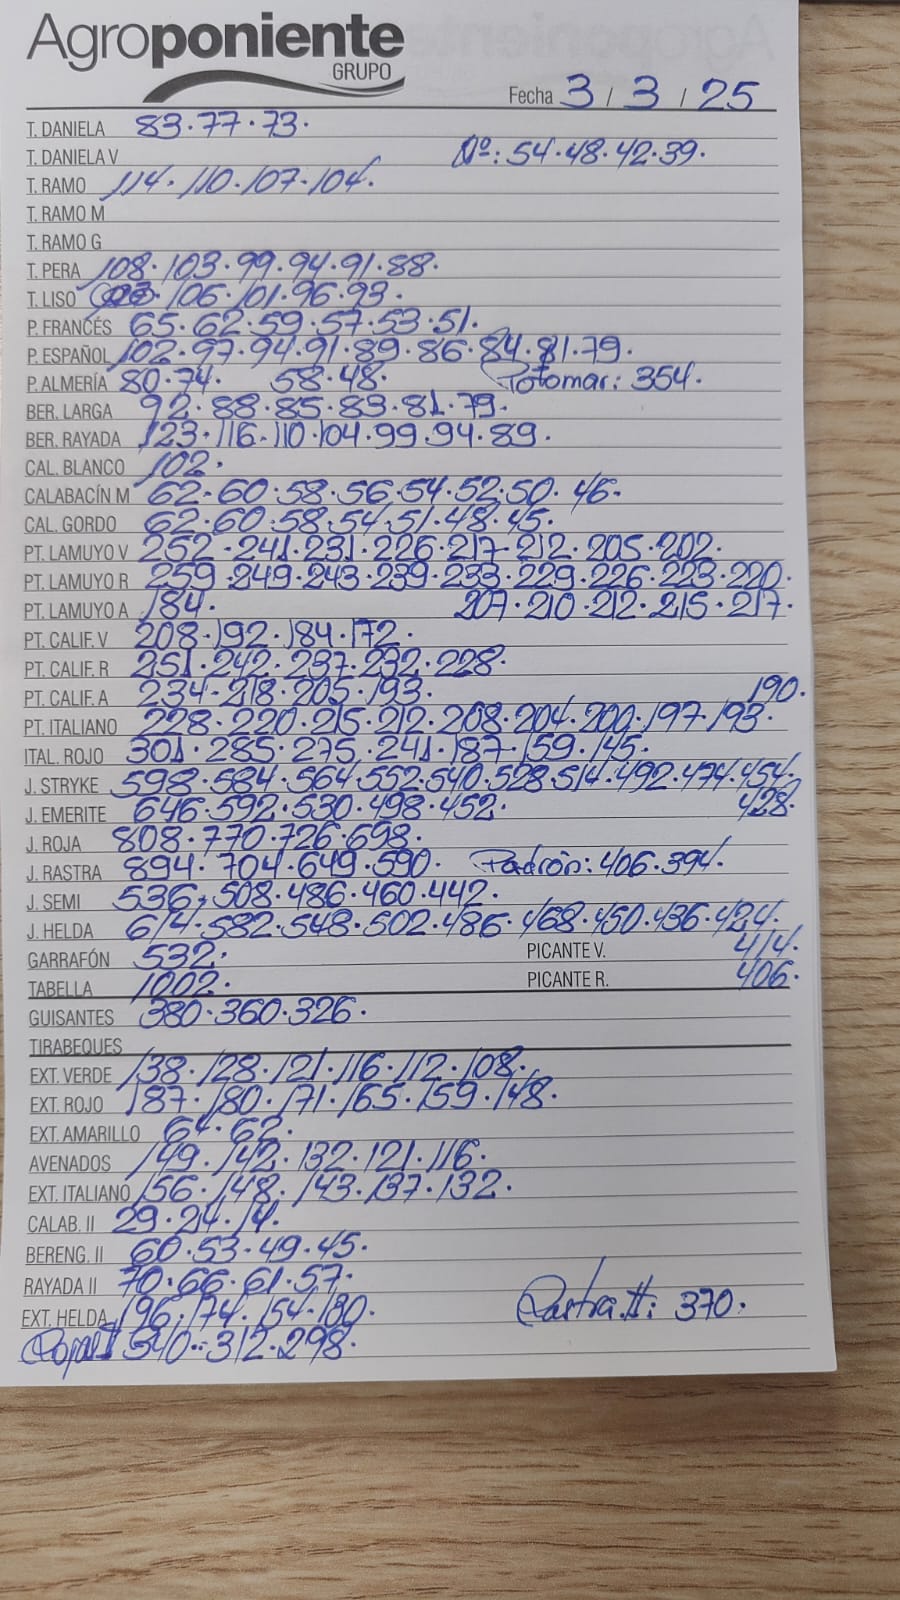 Agroponiente
GRUPO
Fecha 3 / 3 / 25
T. DANIELA 83.77.73.
T. DANELA V Nº: 54.48.42.39.
T. RAMO 114.110.107.104.
T. RAMO M
T. RAMO G
T. PERA 108.103.99.94.91.88.
T. LISO 106.101.96.93.
P. FRANCÉS 65.62.59.57.53.51.
P. ESPAÑOL 102.97.94.91.89.86.84.81.79.
P. ALMERÍA 80.74. 58.48. Potomar: 354.
BER. LARGA 92.88.85.83.81.79.
BER. RAYADA 123.116.110.104.99.94.89.
CAL. BLANCO 102.
CALABACÍN M 62.60.58.56.54.52.50.46.
CAL. GORDO 62.60.58.54.51.48.45.
PT. LAMUYO V 252.241.231.226.217.212.205.202.
PT. LAMUYO R 259.249.243.239.233.229.226.223.220.
PT. LAMUYO A 184. 207.210.212.215.217.
PT. CALIF. V 208.192.184.172.
PT. CALIF. R 251.242.237.232.228.
PT. CALIF. A 234.218.205.193. 190.
PT. ITALIANO 228.220.215.212.208.204.200.197.193.
ITAL. ROJO 301.285.275.241.187.159.145.
J. STRYKE 598.584.564.552.540.528.514.492.474.454.
J. EMERITE 646.592.530.498.452. 428.
J. ROJA 808.770.726.698.
J. RASTRA 894.704.649.590. Padrón: 406.394.
J. SEMI 536.508.486.460.442.
J. HELDA 614.582.548.502.486.468.450.436.424.
GARRAFÓN 532. PICANTE V. 414.
TABELLA 1002. PICANTE R. 406.
GUISANTES 380.360.326.
TIRABEQUES
EXT. VERDE 138.128.121.116.112.108.
EXT. ROJO 187.180.171.165.159.148.
EXT. AMARILLO 64.62.
AVENADOS 149.142.132.121.116.
EXT. ITALIANO 156.148.143.137.132.
CALAB. II 29.24.14.
BERENG. II 60.53.49.45.
RAYADA II 70.66.61.57.
EXT. HELDA 196.174.154.130. Rastra II: 370.
340.312.298.